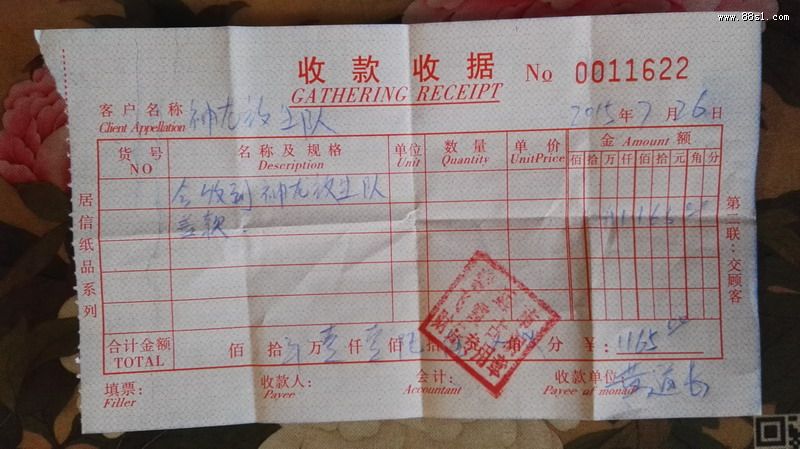 www.88s1.com
收款收据 No 0011622
GATHERING RECEIPT
客户名称 神龙放生队 2015年7月26日
Client Appellation
货号 名称及规格 单位 数量 单价 金 Amount 额
NO Description Unit Quantity UnitPrice 佰 拾 万 仟 佰 拾 元 角 分
今收到神龙放生队
善款.
居信纸品系列
第二联:交顾客
合计金额 佰 拾 万 壹 仟 壹 佰 拾 角 分 ¥: 1165
TOTAL
填票: 收款人: 会计: 收款单位
Filler Payee Accountant Payee of monad